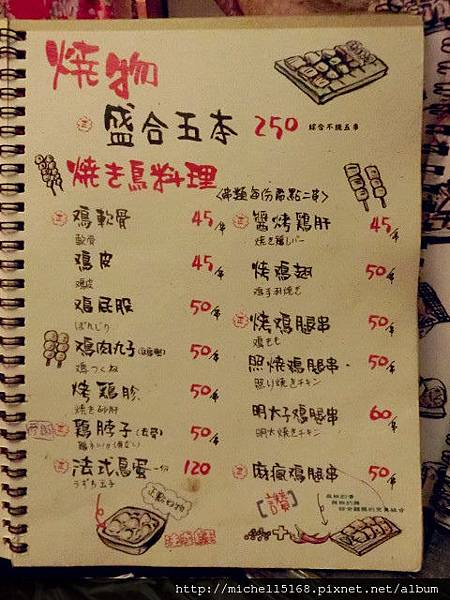 燒物
盛合五本 250 綜合不挑五串
燒き鳥料理
<串類每份需點二串>
雞軟骨 45/串
軟骨
雞皮 45/串
雞皮
雞屁股 50/串
ぼんじり
雞肉丸子 50/串
鶏つくね
烤雞胗 50/串
焼き砂肝
雞脖子(去骨) 50/串
法式鳥蛋一份 120
うずら玉子
醬烤雞肝 45/串
焼き鶏レバー
烤雞翅 50/串
鶏手羽焼き
烤雞腿串 50/串
鶏もも
照燒雞腿串 50/串
照り焼きチキン
明太子雞腿串 60/串
明太焼きチキン
麻瘋雞腿串 50/串
[讚]
http://michell5168.pixnet.net/album